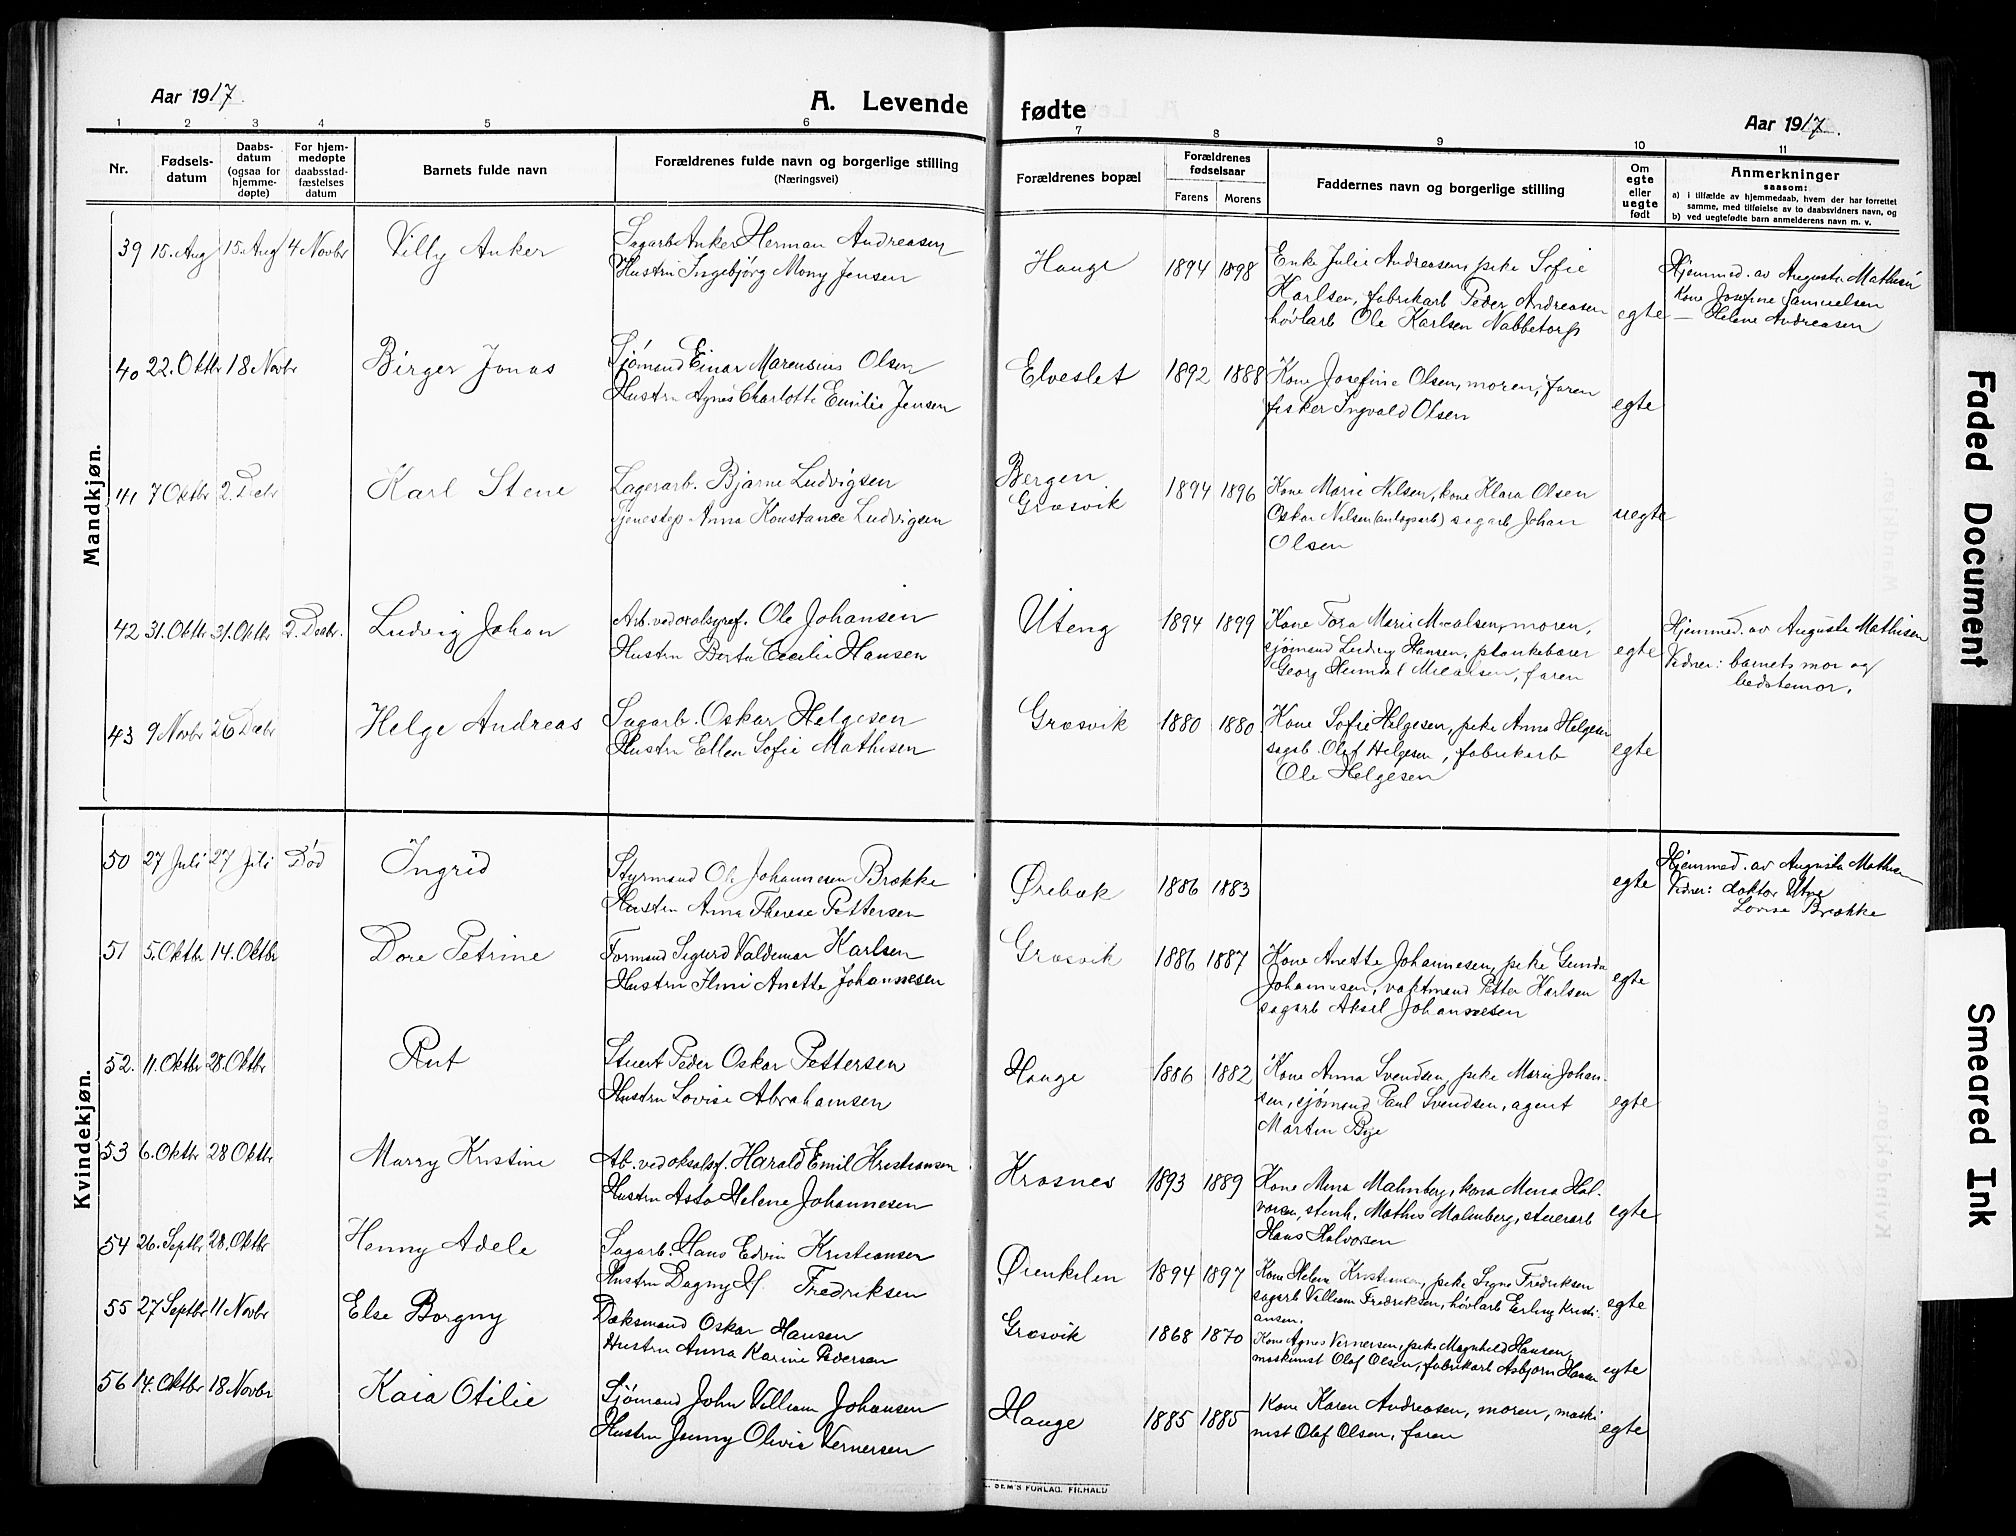 Aar 1917.
A. Levende fødte
Aar 1917.
1 2 3 4 5 6 7 8 9 10 11
Nr.
Fødsels-
datum
Daabs-
datum
(ogsaa for
hjemme-
døpte)
For hjem-
medøpte
daabsstad-
fæstelses
datum
Barnets fulde navn
Forældrenes fulde navn og borgerlige stilling
(Næringsvei)
Forældrenes bopæl
Forældrenes
fødselsaar
Farens Morens
Faddernes navn og borgerlige stilling
Om
egte
eller
uegte
født
Anmerkninger
saasom:
a) i tilfælde av hjemmedaab, hvem der har forrettet
samme, med tilføielse av to daabsvidners navn, og
b) ved uegtefødte barn anmelderens navn m. v.
Mandkjøn.
39 15. Aug 15. Aug 4 Novbr Villy Anker
Sagarb Anker Herman Andreasen
Hustru Ingebjørg Mony Jensen
Hauge 1894 1898
Enke Julie Andreasen, pike Sofie
Karlsen, fabrikarb Peder Andreasen
høvlarb Ole Karlsen Nabbetorp
egte
Hjemmed. av Augusta Mathisen
Kone Josefine Samuelsen
— Helene Andreasen
40 22. Oktbr 18 Novbr Birger Jonas
Sjømand Einar Marensius Olsen
Hustru Agnes Charlotte Emilie Jensen
Elveslet 1892 1888
Kone Josefine Olsen, moren, faren
fisker Ingvald Olsen
egte
41 7 Oktbr 2. Decbr Karl Stene
Lagerarb. Bjarne Ludvigsen
Tjenestep Anna Konstance Ludvigsen
Bergen
Græsvik 1894 1896
Kone Marie Nilsen, kone Klara Olsen
Oskar Nilsen (anlægsarb) sagarb Johan
Olsen
uegte
42 31. Oktbr 31. Oktbr 2. Decbr. Ludvig Johan
Arb. ved oxalsyref. Ole Johansen
Hustru Berta Cecilie Hansen
Uteng 1894 1899
Kone Tora Marie Micalsen, moren,
sjømand Ludvig Hansen, plankebærer
Georg Heimdal Micalsen, faren
egte
Hjemmed. av Augusta Mathisen
Vidner: barnets mor og
bedstemor.
43 9 Novbr 26 Decbr Helge Andreas
Sagarb. Oskar Helgesen
Hustru Ellen Sofie Mathisen
Græsvik 1880 1880
Kone Sofie Helgesen, pike Anna Helgesen
sagarb. Olaf Helgesen, fabrikarb
Ole Helgesen
egte
Kvindekjøn.
50 27 Juli 27 Juli Død Ingrid
Styrmand Ole Johannesen Brække
Hustru Anna Therese Pettersen
Ørebæk 1886 1883
egte
Hjemmed. av Augusta Mathisen
Vidner: doktor Utne
Lovise Brække
51 5. Oktbr 14. Oktbr Dore Petrine
Formand Sigurd Valdemar Karlsen
Hustru Ilmi Anette Johannesen
Græsvik 1886 1887
Kone Anette Johannesen, pike Gunda
Johannesen, vaktmand Petter Karlsen
sagarb Aksel Johannesen
egte
52. 11. Oktbr 28. Oktbr Rut
Stuert Peder Oskar Pettersen
Hustru Lovise Abrahamsen
Hauge 1886 1882
Kone Anna Svendsen, pike Marie Johan-
sen, sjømand Paul Svendsen, agent
Martin Bye
egte
53 6. Oktbr 28 Oktbr Marry Kristine
Ab. ved oksalsf. Harald Emil Kristiansen
Hustru Asta Helene Johannesen
Krosnes 1893 1889
Kone Mina Malmberg, kona Mina Hal-
vorsen, stenh. Mathis Malmberg, stuerarb
Hans Halvorsen
egte
54 26. Septbr 28. Oktbr Henny Adele
Sagarb. Hans Edvin Kristiansen
Hustru Dagny H. Fredriksen
Ørenkilen 1894 1897
Kone Helene Kristiansen, pike Signe Fredriksen
sagarb Villiam Fredriksen, høvlarb Erling Kristi-
ansen.
egte
55 27 Septbr 11 Novbr Else Borgny
Dæksmand Oskar Hansen
Hustru Anna Karine Pedersen
Græsvik 1868 1870
Kone Agnes Vernersen, pike Magnhild Hansen,
maskinist Olaf Olsen, fabrikarb Asbjørn Hansen
egte
56 14. Oktbr 18 Novbr Kaia Otilie
Sjømand John Villiam Johansen
Hustru Jenny Olivie Vernersen
Hauge 1885 1885
Kone Karen Andreasen, moren, maski
nist Olaf Olsen, faren
egte
SEM'S FORLAG, FR.HALD
Faded Document
Smeared Ink